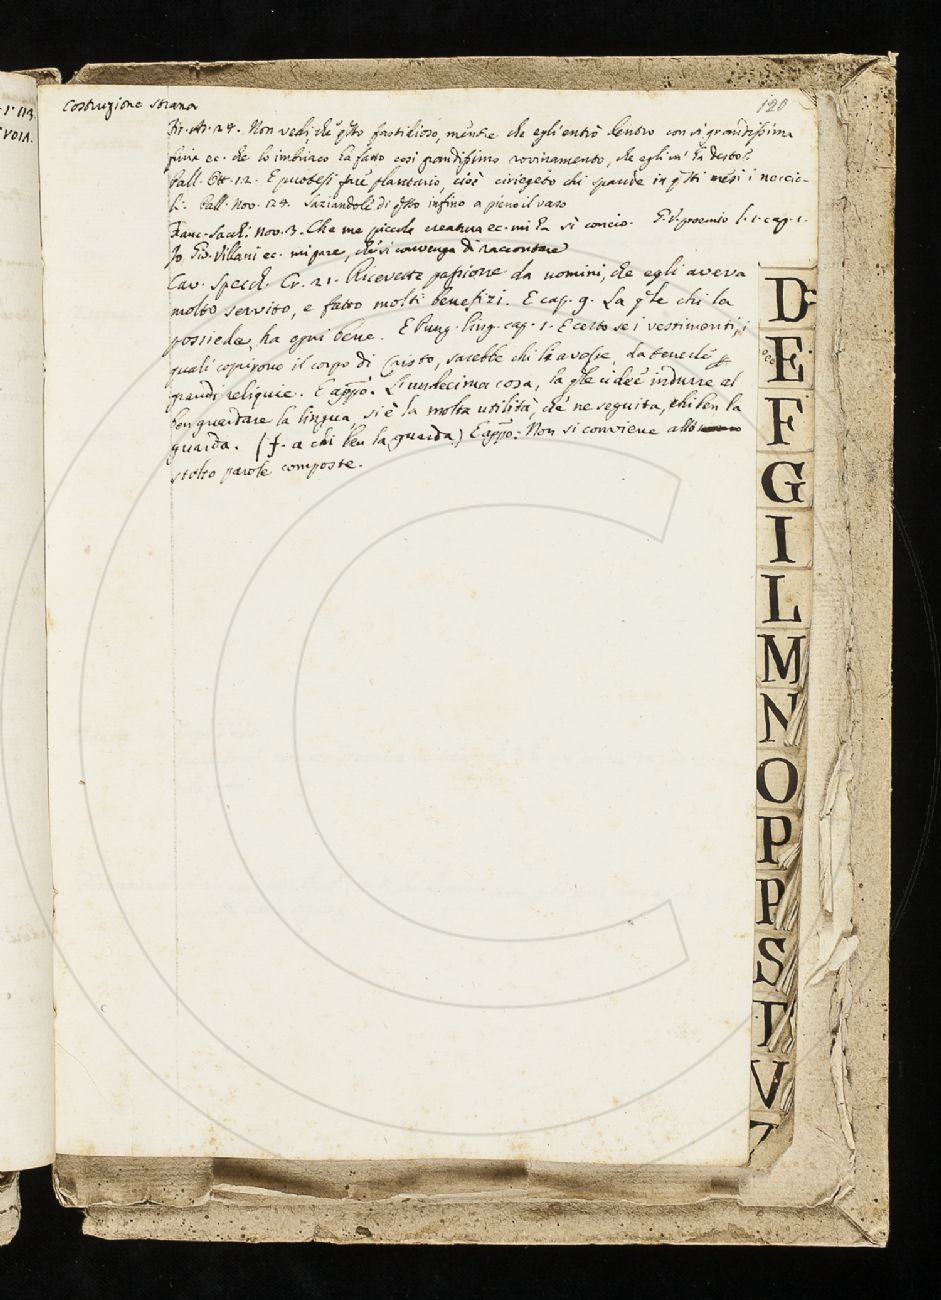 Costruzione strana
120
Fir. As. 24. Non vedi che qsto fastidioso, mentre che egli entrò dentro con sì grandissima
furia ec. che lo imbriaco ha fatto così grandissimo rovinamento, che egli m'ha desto?
Pall. Ott. 12. E puotesi fare plantario, cioè ciriegeto chi spande in qsti mesi i noccio-
li. Pall. Nov. 24. saziandole di qsto infino a pieno il vaso
Franc. Sacch. Nov. 3. Che me piccola creatura ec. mi ha sì concio. G. V. proemio l. 1. cap. 1.
Io Gio. Villani ec. mi pare, che si convenga di raccontare
Cav. Specch. Cr. 21. Ricevette passione da uomini, che egli aveva
molto servito, e fatto molti benefizi. E cap. 9. La qle chi la
possiede, ha ogni bene. E Pung. ling. cap. 1. E certo se i vestimenti, i
quali copirono il corpo di Cristo, sarebbe chi li avesse, da tenerle p
grandi reliquie. E appo. L'undecima cosa, la qle ci dee indurre al
ben guardare la lingua, si è la molta utilità, che ne seguita, chi ben la
guarda. (f. a chi ben la guarda) E appo. Non si conviene allo
stolto parole composte.
1. 113.
VOIA.
D
E
F
G
I
L
M
N
O
P
P
S
T
V
Z